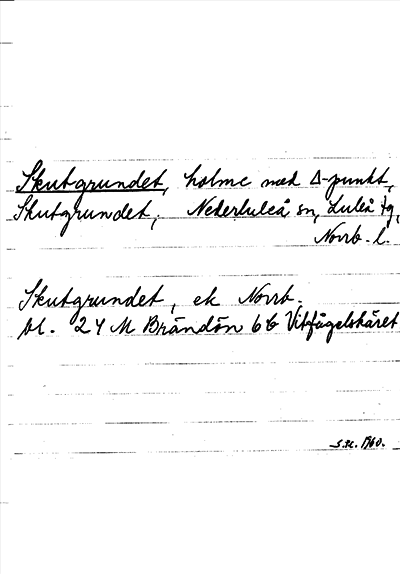 Skutgrundet, holme med Δ-punkt,
Skutgrundet, Nederluleå sn, Luleå tg,
Norrb. l.
Skutgrundet, ek Norrb.
bl. 24 M Brändön 6 b Vitfågelskäret
1960.